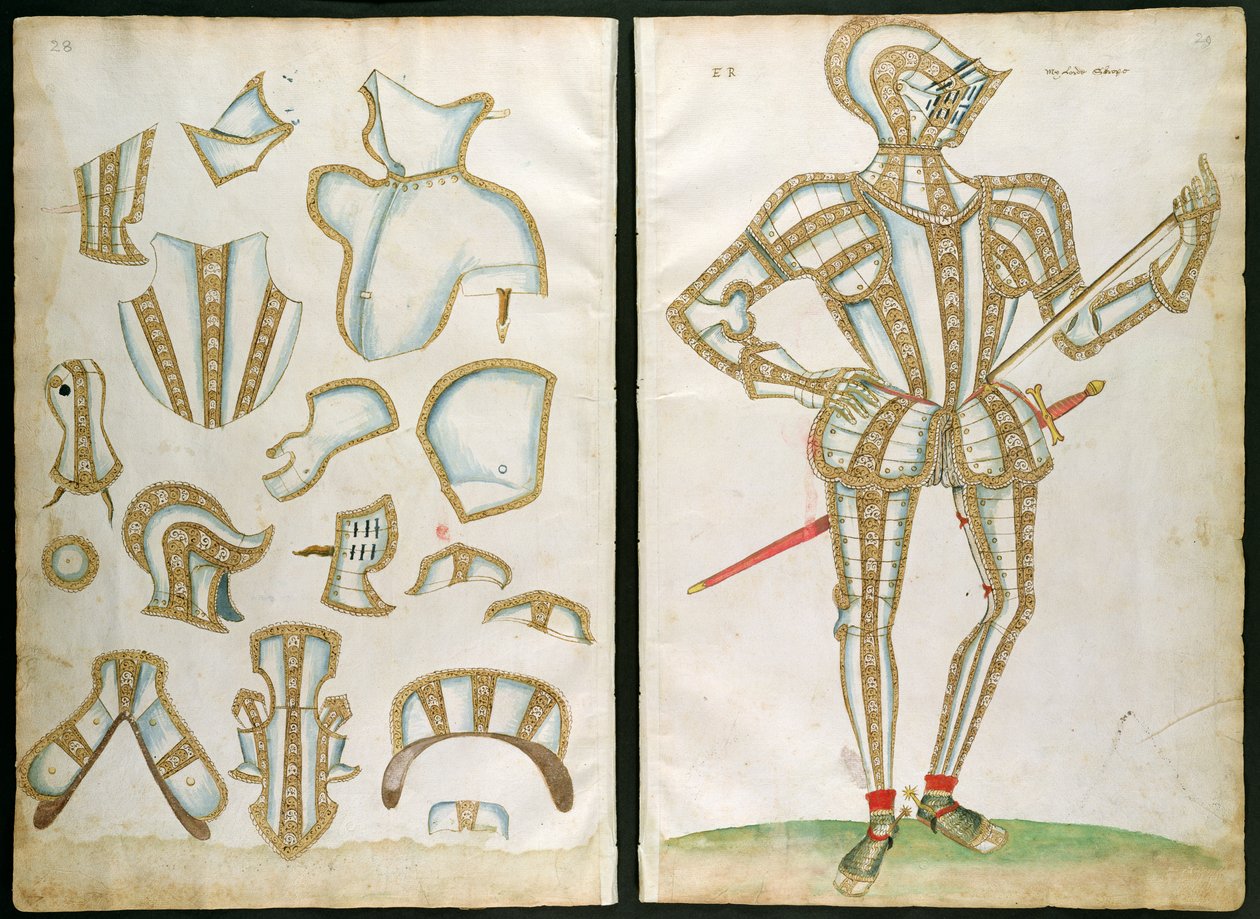 28
E R
My Lorde Skrope
29